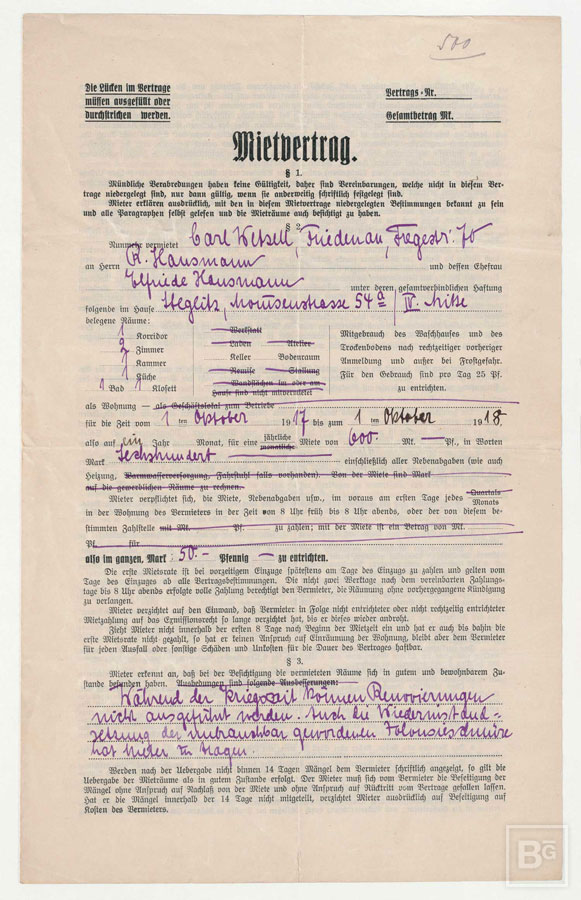 500
Die Lücken im Vertrage
müssen ausgefüllt oder
durchstrichen werden.
Vertrags-Nr.
Gesamtbetrag Mk.
Mietvertrag.
§ 1.
Mündliche Verabredungen haben keine Gültigkeit, daher sind Vereinbarungen, welche nicht in diesem Ver-
trage niedergelegt sind, nur dann gültig, wenn sie anderweitig schriftlich festgelegt sind.
Mieter erklären ausdrücklich, mit den in diesem Mietvertrage niedergelegten Bestimmungen bekannt zu sein
und alle Paragraphen selbst gelesen und die Mieträume auch besichtigt zu haben.
§ 2.
Nunmehr vermietet Carl Wetzell, Friedenau, Fregestr. 70
an Herrn R. Hausmann und dessen Ehefrau
Elfriede Hausmann unter deren gesamtverbindlichen Haftung
folgende im Hause Steglitz, Mommsenstrasse 54a IV. Mitte
belegene Räume:
1 Korridor
2 Zimmer
1 Kammer
1 Küche
1 Bad 1 Klosett
Werkstatt
Laden Atelier
Keller Bodenraum
Remise Stallung
Wandflächen im oder am
Hause sind nicht mitvermietet
Mitgebrauch des Waschhauses und des
Trockenbodens nach rechtzeitiger vorheriger
Anmeldung und außer bei Frostgefahr.
Für den Gebrauch sind pro Tag 25 Pf.
zu entrichten.
als Wohnung — als Geschäftslokal zum Betriebe
für die Zeit vom 1 ten Oktober 1917 bis zum 1 ten Oktober 1918.
also auf ein Jahr Monat, für eine jährliche monatliche Miete von 600. Mk. — Pf., in Worten
Mark Sechshundert einschließlich aller Nebenabgaben (wie auch
Heizung, Warmwasserversorgung, Fahrstuhl falls vorhanden). Von der Miete sind Mark
auf die gewerblichen Räume zu rechnen.
Mieter verpflichtet sich, die Miete, Nebenabgaben usw., im voraus am ersten Tage jedes Quartals Monats
in der Wohnung des Vermieters in der Zeit von 8 Uhr früh bis 8 Uhr abends, oder der von diesem be-
stimmten Zahlstelle mit Mk. Pf. zu zahlen; mit der Miete ist ein Betrag von Mk.
Pf. für
also im ganzen, Mark 50.- Pfennig — zu entrichten.
Die erste Mietsrate ist bei vorzeitigem Einzuge spätestens am Tage des Einzugs zu zahlen und gelten vom
Tage des Einzuges ab alle Vertragsbestimmungen. Die nicht zwei Werktage nach dem vereinbarten Zahlungs-
tage bis 8 Uhr abends erfolgte volle Zahlung berechtigt den Vermieter, die Räumung ohne vorhergegangene Kündigung
zu verlangen.
Mieter verzichtet auf den Einwand, daß Vermieter in Folge nicht entrichteter oder nicht rechtzeitig entrichteter
Mietzahlung auf das Exmissionsrecht so lange verzichtet hat, bis er dieses wieder androht.
Zieht Mieter nicht innerhalb der ersten 8 Tage nach Beginn der Mietzeit ein und hat er auch bis dahin die
erste Mietsrate nicht gezahlt, so hat er keinen Anspruch auf Einräumung der Wohnung, bleibt aber dem Vermieter
für jeden Ausfall oder sonstige Schäden und Unkosten für die Dauer des Vertrages haftbar.
§ 3.
Mieter erkennt an, daß bei der Besichtigung die vermieteten Räume sich in gutem und bewohnbarem Zu-
stande befunden haben. Ausbedungen sind folgende Ausbesserungen:
Während der Kriegszeit können Renovierungen
nicht ausgeführt werden. Auch die Wiederinstand-
setzung der unbrauchbar gewordenen Jalousieschnüre
hat Mieter zu tragen.
Werden nach der Uebergabe nicht binnen 14 Tagen Mängel dem Vermieter schriftlich angezeigt, so gilt die
Uebergabe der Mieträume als in gutem Zustande erfolgt. Der Mieter muß sich vom Vermieter die Beseitigung der
Mängel ohne Anspruch auf Nachlaß von der Miete und ohne Anspruch auf Rücktritt vom Vertrage gefallen lassen.
Hat er die Mängel innerhalb der 14 Tage nicht mitgeteilt, verzichtet Mieter ausdrücklich auf Beseitigung auf
Kosten des Vermieters.
BG